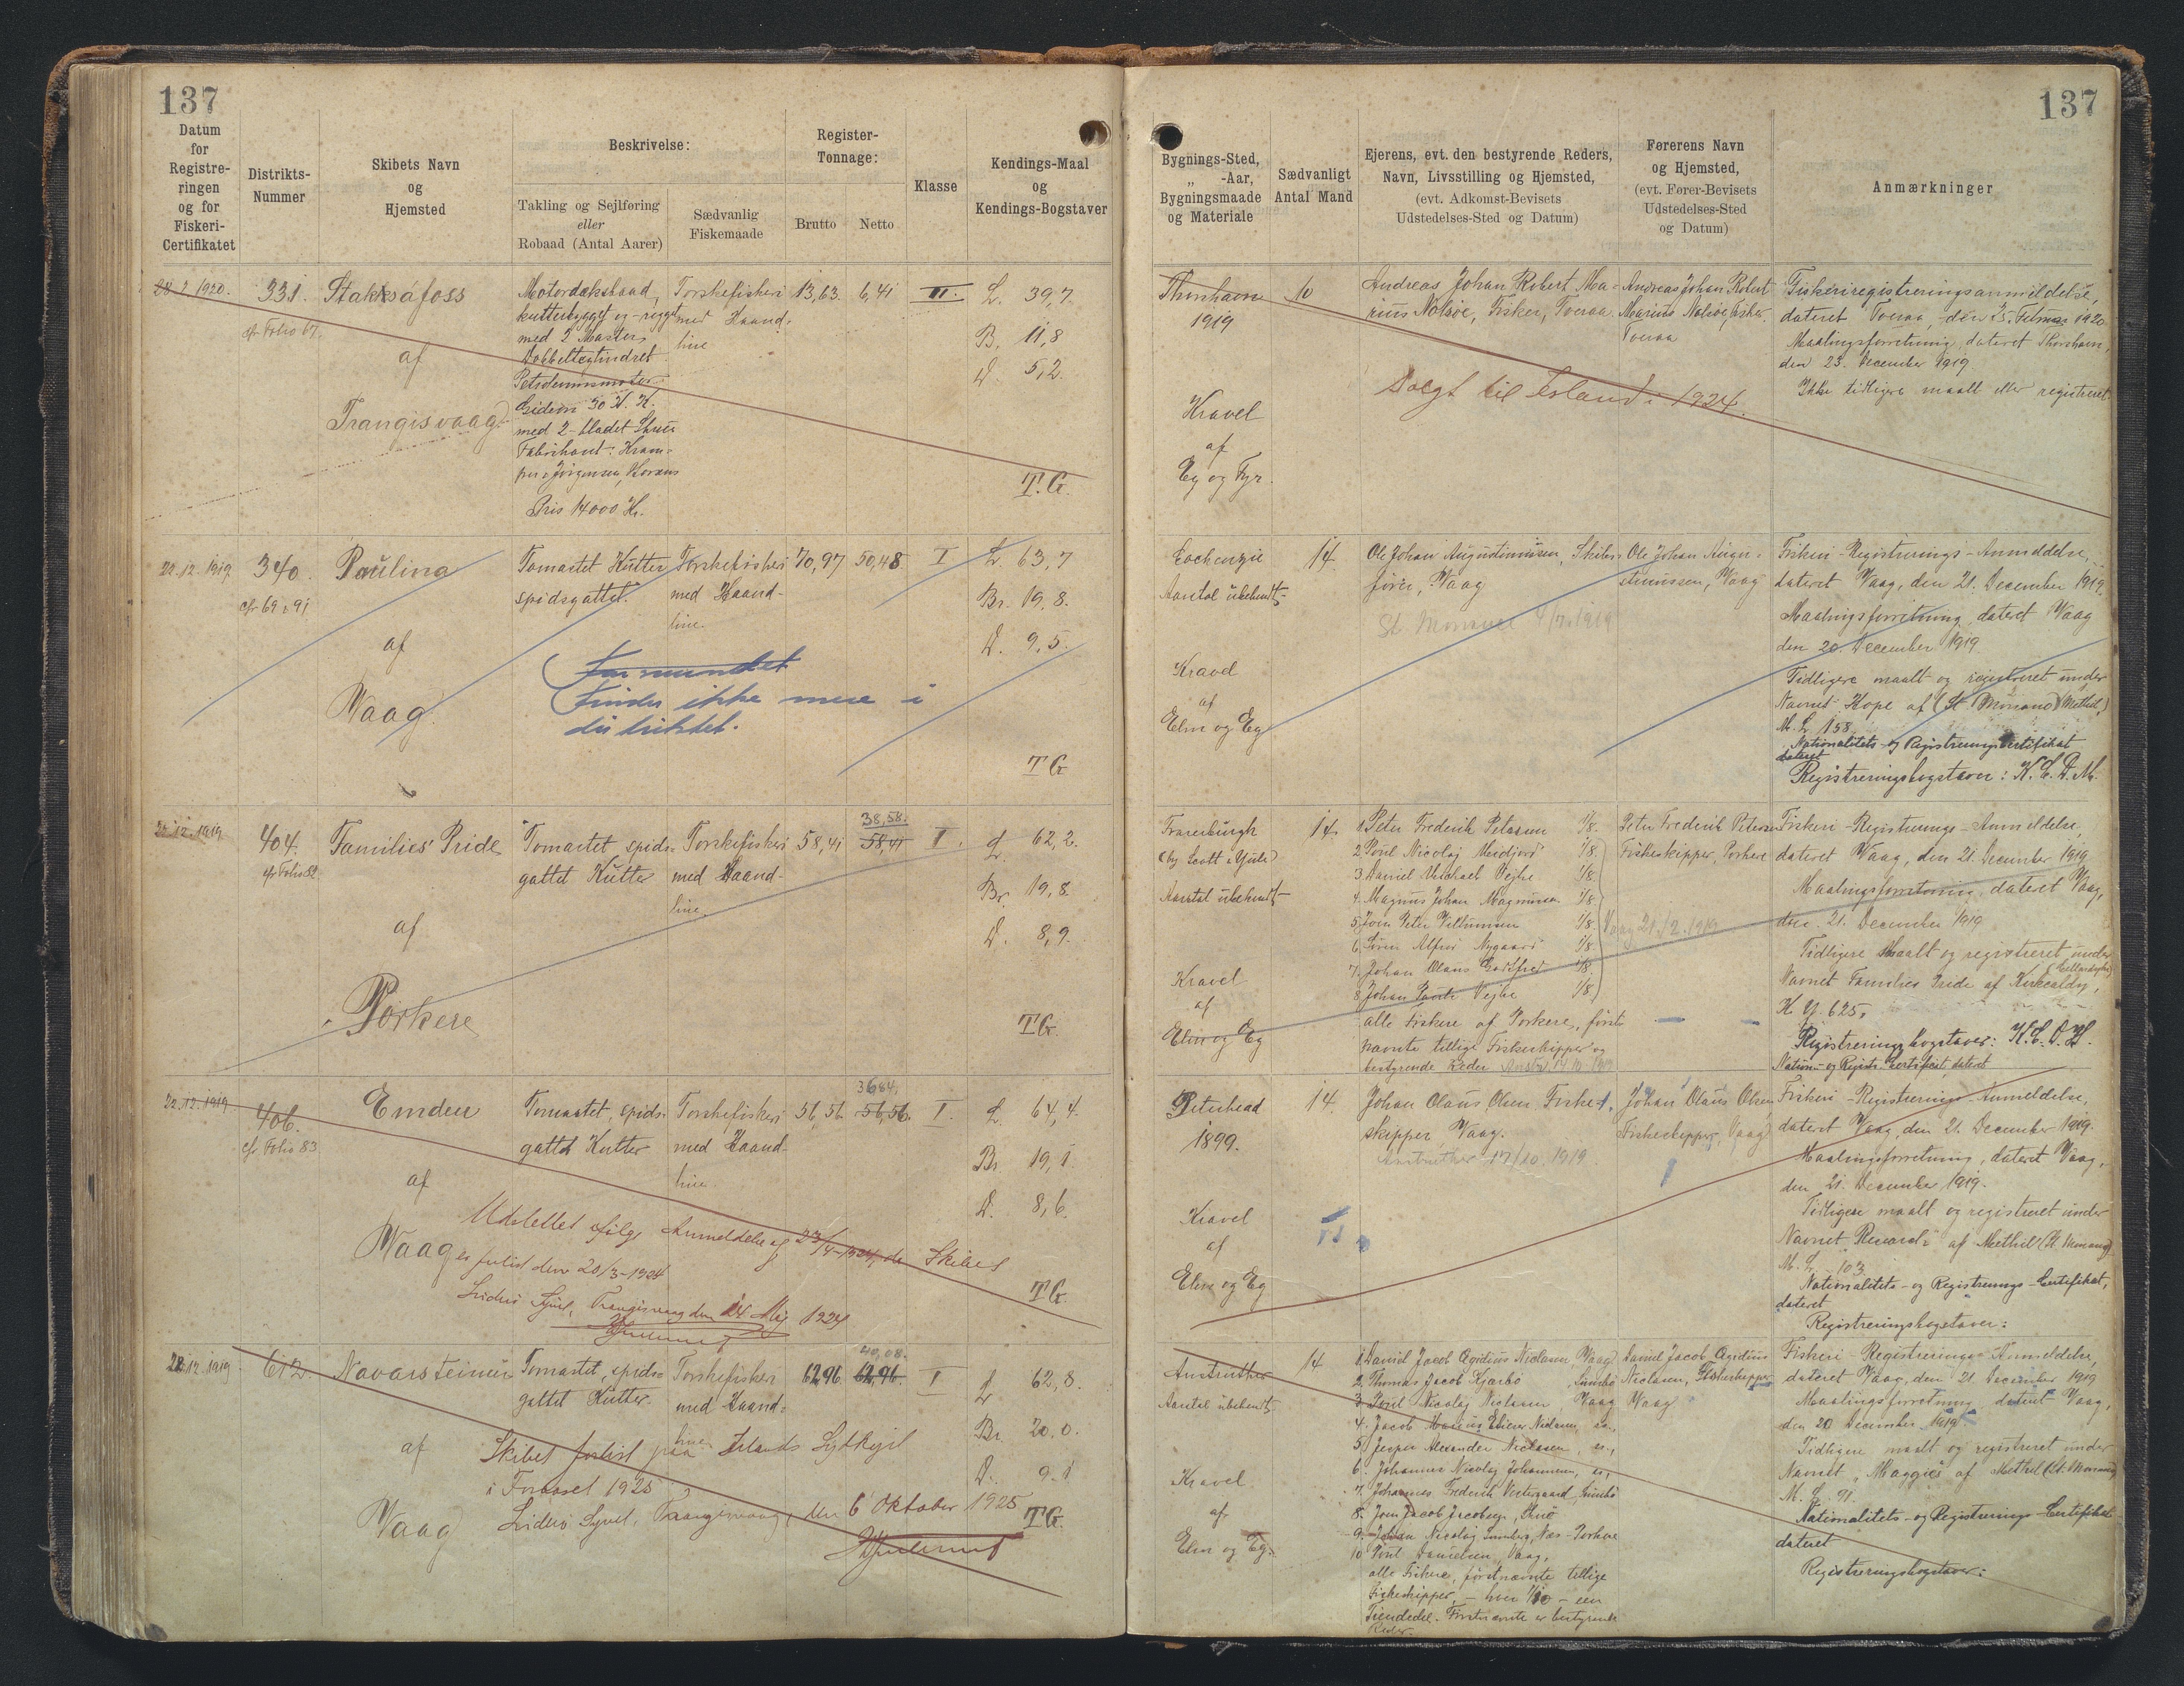 137
Datum
for
Registre-
ringen
og for
Fiskeri-
Certifikatet
Distrikts-
Nummer
Skibets Navn
og
Hjemsted
Beskrivelse:
Takling og Sejlføring
eller
Robaad (Antal Aarer)
Sædvanlig
Fiskemaade
Register-
Tonnage:
Brutto Netto
Klasse
Kendings-Maal
og
Kendings-Bogstaver
28.2.1920.
331.
cfr Folio 67.
Stakksáfoss
af
Trangisvaag
Motordæksbaad,
kutterbygget og -rigget
med 2 Master
Dobbeltcylindret
Petroleumsmotor
Gideon 50 H.K.
med 2-bladet Skrue
Fabrikant:
Jørgensen, Horsens
Pris 14000 Kr.
Torskefiskeri
med Haand-
line
13,63. 6,41 III.
L. 39,7.
B. 11,8
D. 5,2.
T.G.
22.12.1919
340.
cfr 69 & 91
Paulina
af
Vaag.
Tomastet Kutter
spidsgattet.
Torskefiskeri
med Haand-
line.
70,97 50,48 I
L. 63,7
Br. 19,8.
D. 9,5.
Finder ikke mere i
distriktet.
T G
22.12.1919
404.
cfr Folio 82
Families' Pride
af
Porkere
Tomastet spids-
gattet Kutter
Torskefiskeri
med Haand-
line.
38,58.
58,41 58,41 I.
L. 62,2.
Br. 19,8.
D. 8,9.
T.G.
22.12.1919
406.
cfr Folio 83
Emden
af
Vaag
Tomastet, spids-
gattet Kutter
Torskefiskeri
med Haand-
line.
36,84.
56,56. 56,56. I.
L. 64,4.
Br. 19,1.
D. 8,6.
Udslettet ifølge Anmeldelse af 23/4-1924, da Skibet
er forlist den 20/3-1924
Suderø Syssel, Trangisvaag den 14 Maj 1924
T.G.
22.12.1919
612.
Navarsteinur
af
Vaag
Tomastet, spids-
gattet Kutter.
Torskefiskeri
med Haand-
line
40,08.
62,96. 62,96. I
L. 62,8.
Br. 20,0.
D. 9,1
Skibet forlist paa Islands Sydkyst
i Foraaret 1925
Suderø Syssel, Trangisvaag, den 6 Oktober 1925
T.G.
137
Bygnings-Sted,
„ -Aar,
Bygningsmaade
og Materiale
Sædvanligt
Antal Mand
Ejerens, evt. den bestyrende Reders,
Navn, Livsstilling og Hjemsted,
(evt. Adkomst-Bevisets
Udstedelses-Sted og Datum)
Førerens Navn
og Hjemsted,
(evt. Fører-Bevisets
Udstedelses-Sted
og Datum)
Anmærkninger
Thorshavn
1919
Kravel
af
Eg og Fyr.
10
Andreas Johan Robert Ma-
rius Nolsøe, Fisker, Tveraa
Solgt til Island i 1924.
Andreas Johan Robert
Marius Nolsøe, Fisker.
Tveraa
Fiskeriregistreringsanmeldelse,
dateret Tveraa, den 25. Februar 1920
Maalingsforretning, dateret Thorshavn,
den 23. December 1919
Ikke tidligere maalt eller registreret
Aarstal ubekendt
Kravel
af
Elm og Eg
14
Ole Johan Augustinussen, Skibs-
fører, Vaag
Ole Johan Augu-
stinussen, Vaag
Fiskeri-Registrerings-Anmeldelse,
dateret Vaag, den 21. December 1919.
Maalingsforretning, dateret Vaag
den 20. December 1919
Tidligere maalt og registreret under
Navnet Hope af (St Monans) (Methil)
M. L 158.
Nationalitets- og Registreringscertifikat
dateret
Registreringsbogstaver: N.C.D.M.
(by Scott & Yule)
Aarstal ubekendt
Kravel
af
Elm og Eg
14.
1. Peter Frederik Petersen 1/8.
2. Poul Nicolaj 1/8.
3. Daniel Michael Vejhe 1/8.
4. Magnus Johan Magnussen 1/8.
5. Joen Peter Villumsen 1/8.
6. Søren Alfred Nygaard 1/8.
7. Johan Olaus Godtfred 1/8.
8. Johan Vejhe 1/8.
alle Fiskere af Porkere, først-
nævnte tillige Fiskeskipper og
bestyrende Reder
Peter Frederik Petersen
Fiskeskipper, Porkere
Vaag 21/12.1919
Fiskeri-Registrerings-Anmeldelse,
dateret Vaag, den 21. December 1919
Maalingsforretning, dateret Vaag,
den 21. December 1919
Tidligere maalt og registreret under
Navnet Families Pride af Kirkcaldy,
K Y 625.
Registreringsbogstaver:
Nation- og Registr. Certifikat dateret
Peterhead
1899.
Kravel
af
Elm og Eg
14.
Johan Olaus Olsen Fiske-
skipper, Vaag.
Anstruther 17/10 1919
Johan Olaus Olsen
Fiskeskipper, Vaag
Fiskeri-Registrerings-Anmeldelse,
dateret Vaag, den 21. December 1919.
Maalingsforretning, dateret Vaag,
den 21. December 1919.
Tidligere maalt og registreret under
Navnet "Record" af Methil (St Monans)
M. L. - 103
Nationalitets- og Registrerings-Certifikat,
dateret
Registreringsbogstaver:
Anstruther
Aarstal ubekendt
Kravel
af
Elm og Eg.
14
1. Daniel Jacob Ægidius Niclasen, Vaag
2. Thomas Jacob Kjærbo, Sumbø
3. Poul Nicolaj Niclasen, Vaag
4. Jacob Marius Niclasen, "
5. Jesper Alexander Niclasen, "
6. Johannes Nicolaj Johannesen, "
7. Johannes Frederik Vestergaard, Sumbø
8. Joen Jacob Jacobsen,
9. Johan Nicolaj Sumberg, Næs-Porkere
10. Poul Danielsen, Vaag,
alle Fiskere, førstnævnte tillige
Fiskeskipper, - hver 1/10 - een
Tiendedel. Førstnævnte er bestyrende
Reder.
Daniel Jacob Ægidius
Niclasen, Fiskeskipper
Vaag
Fiskeri-Registrerings-Anmeldelse,
dateret Vaag, den 21. December 1919
Maalingsforretning dateret Vaag,
den 20 December 1919
Tidligere maalt og registreret under
Navnet "Maggies" af Methil (St. Monans)
M. L. 91.
Nationalitets- og Registrerings-Certifikat
dateret
Registreringsbogstaver: